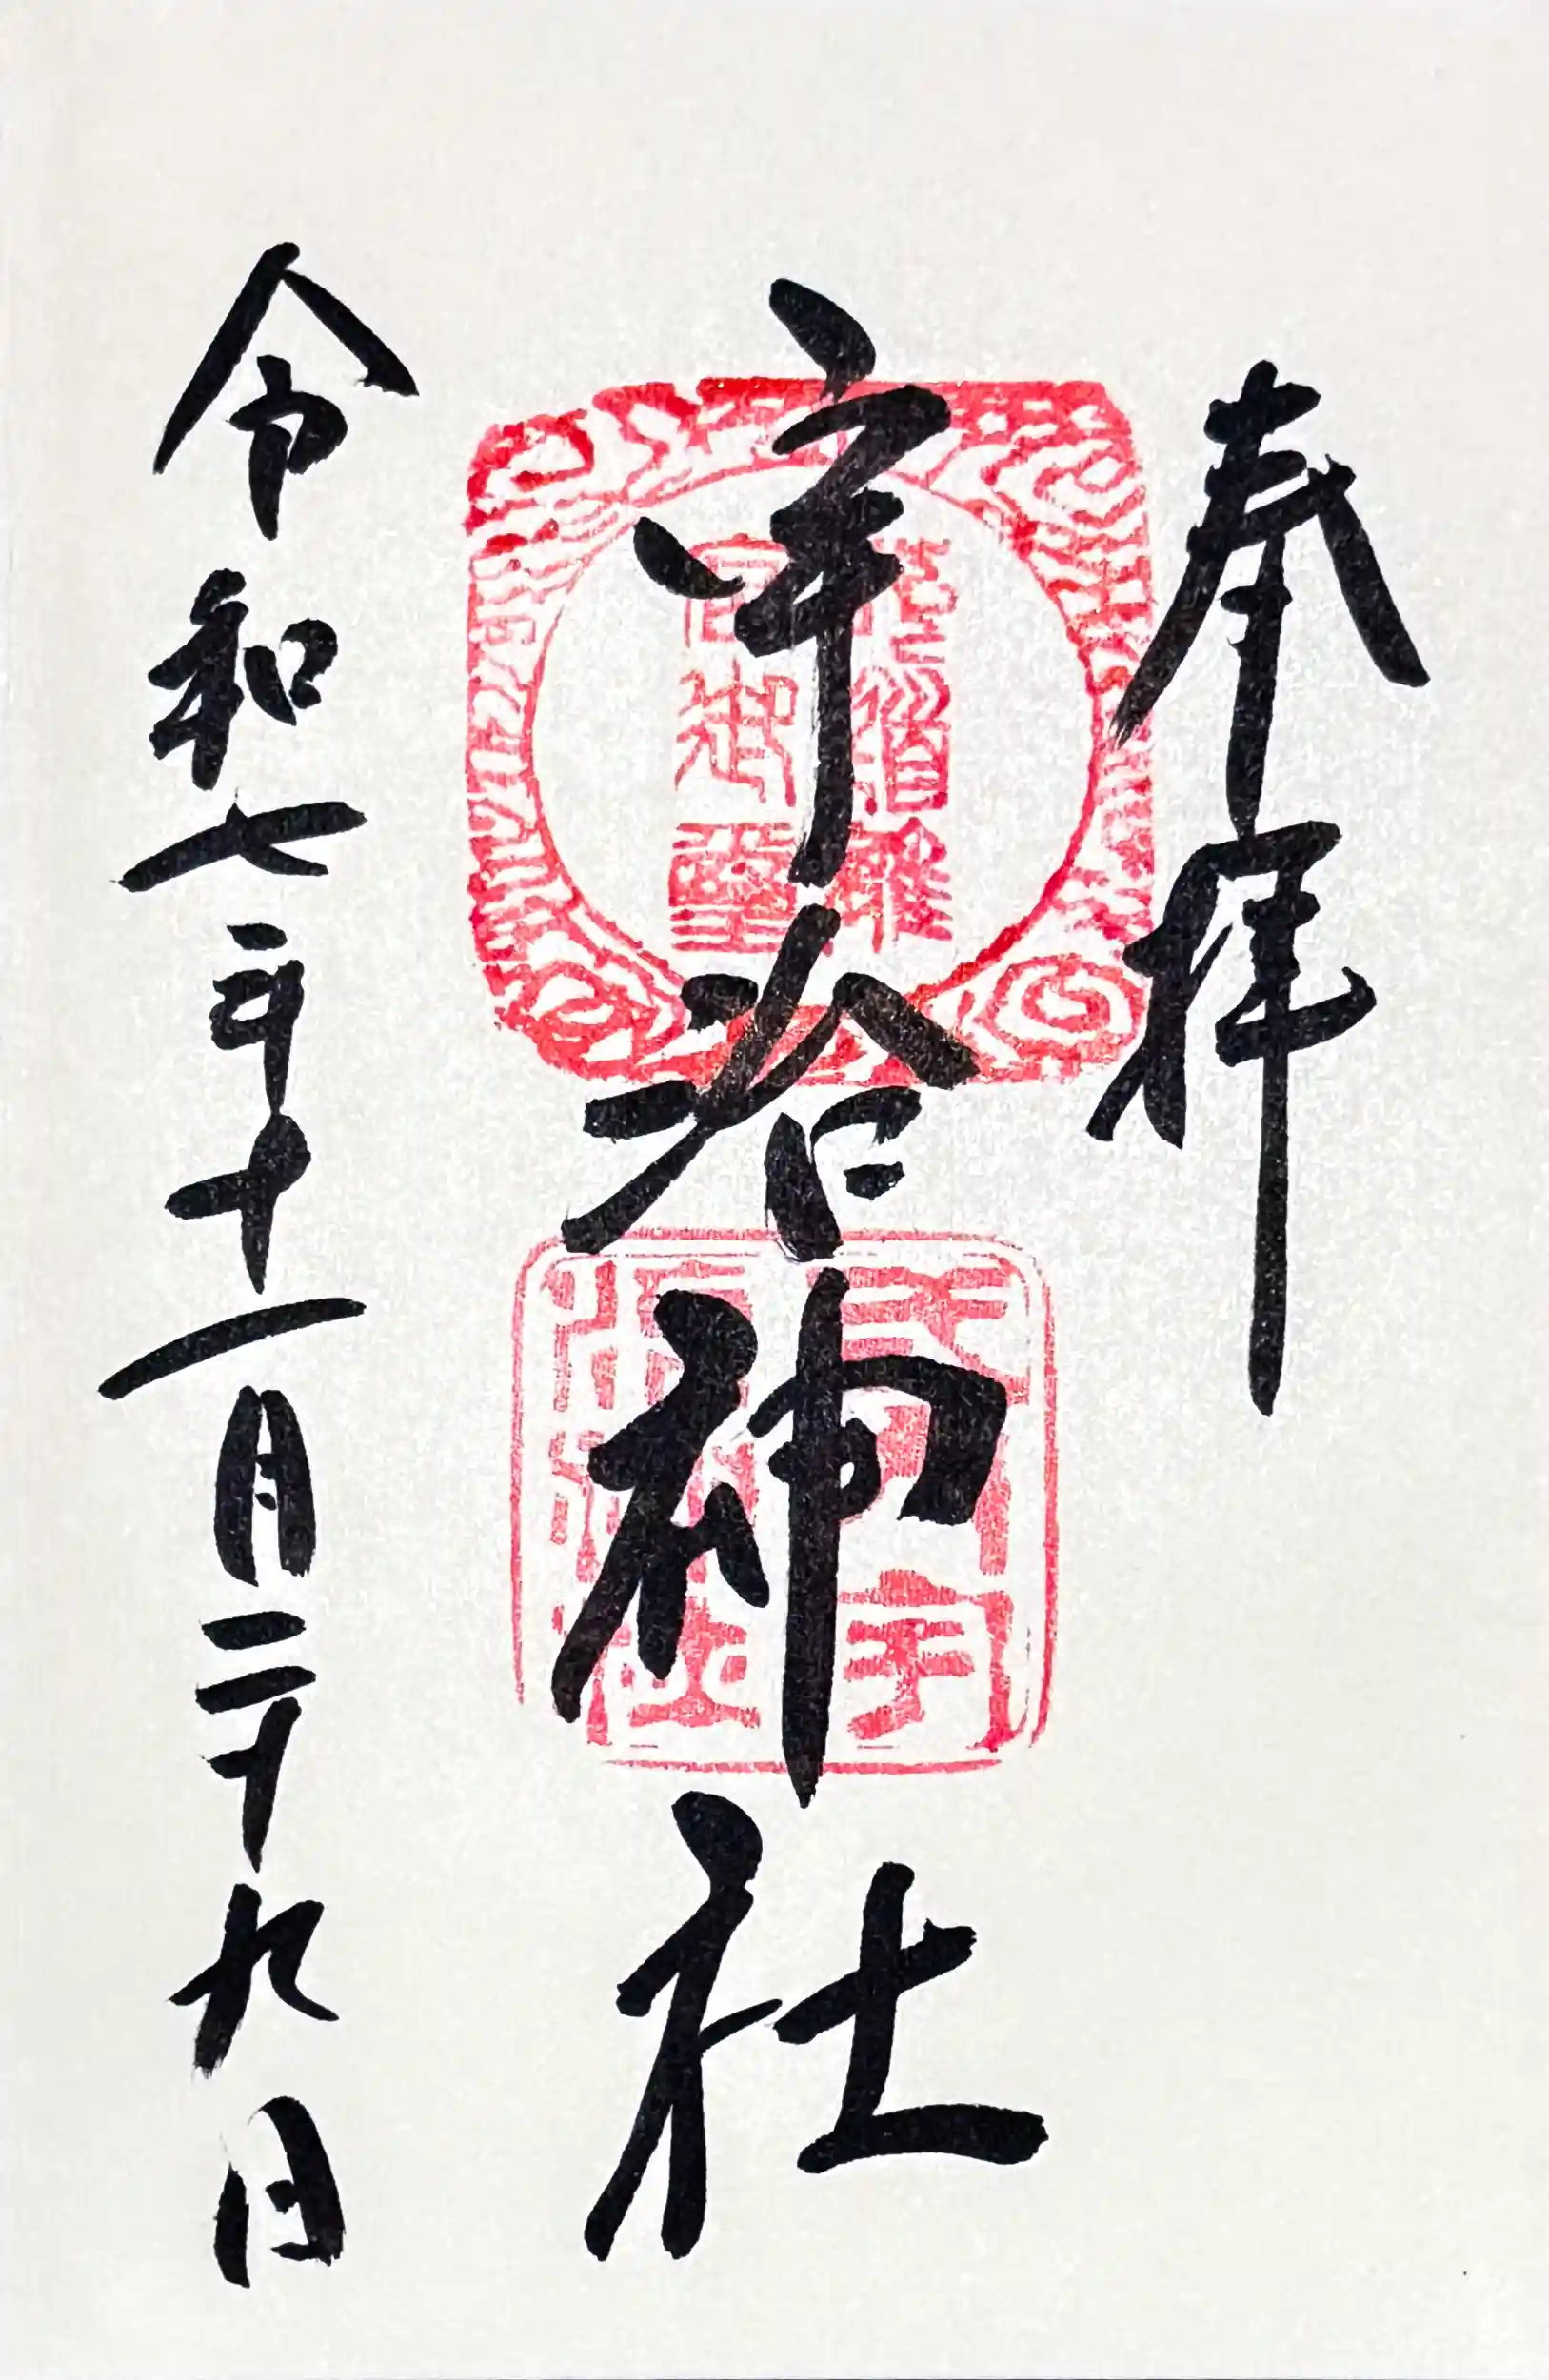 奉拝
宇治神社
令和七年十一月二十九日
式内宇
治神社